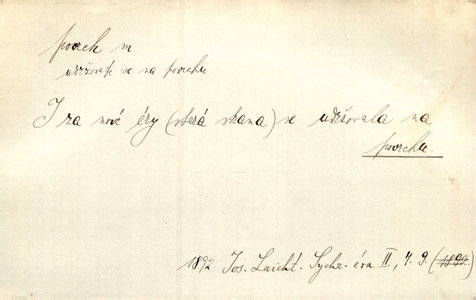 povrch m
udržovati se na povrchu
I za nové éry (stará strana) se udržovala na
povrchu.
1892 Jos. Laicht. Sych. éra II, 4. 9. (1892)